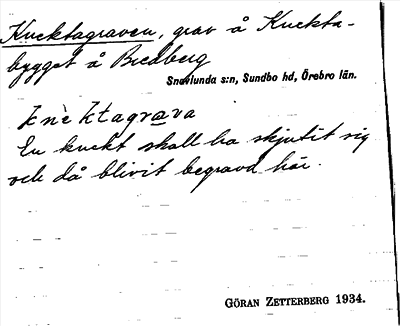 Knecktagraven, grav å Kneckta-
bygget å Bredberg
Snavlunda s:n, Sundbo hd, Örebro län.
knècktagrava
En kneckt skall ha skjutit sig
och då blivit begravd här.
GÖRAN ZETTERBERG 1934.